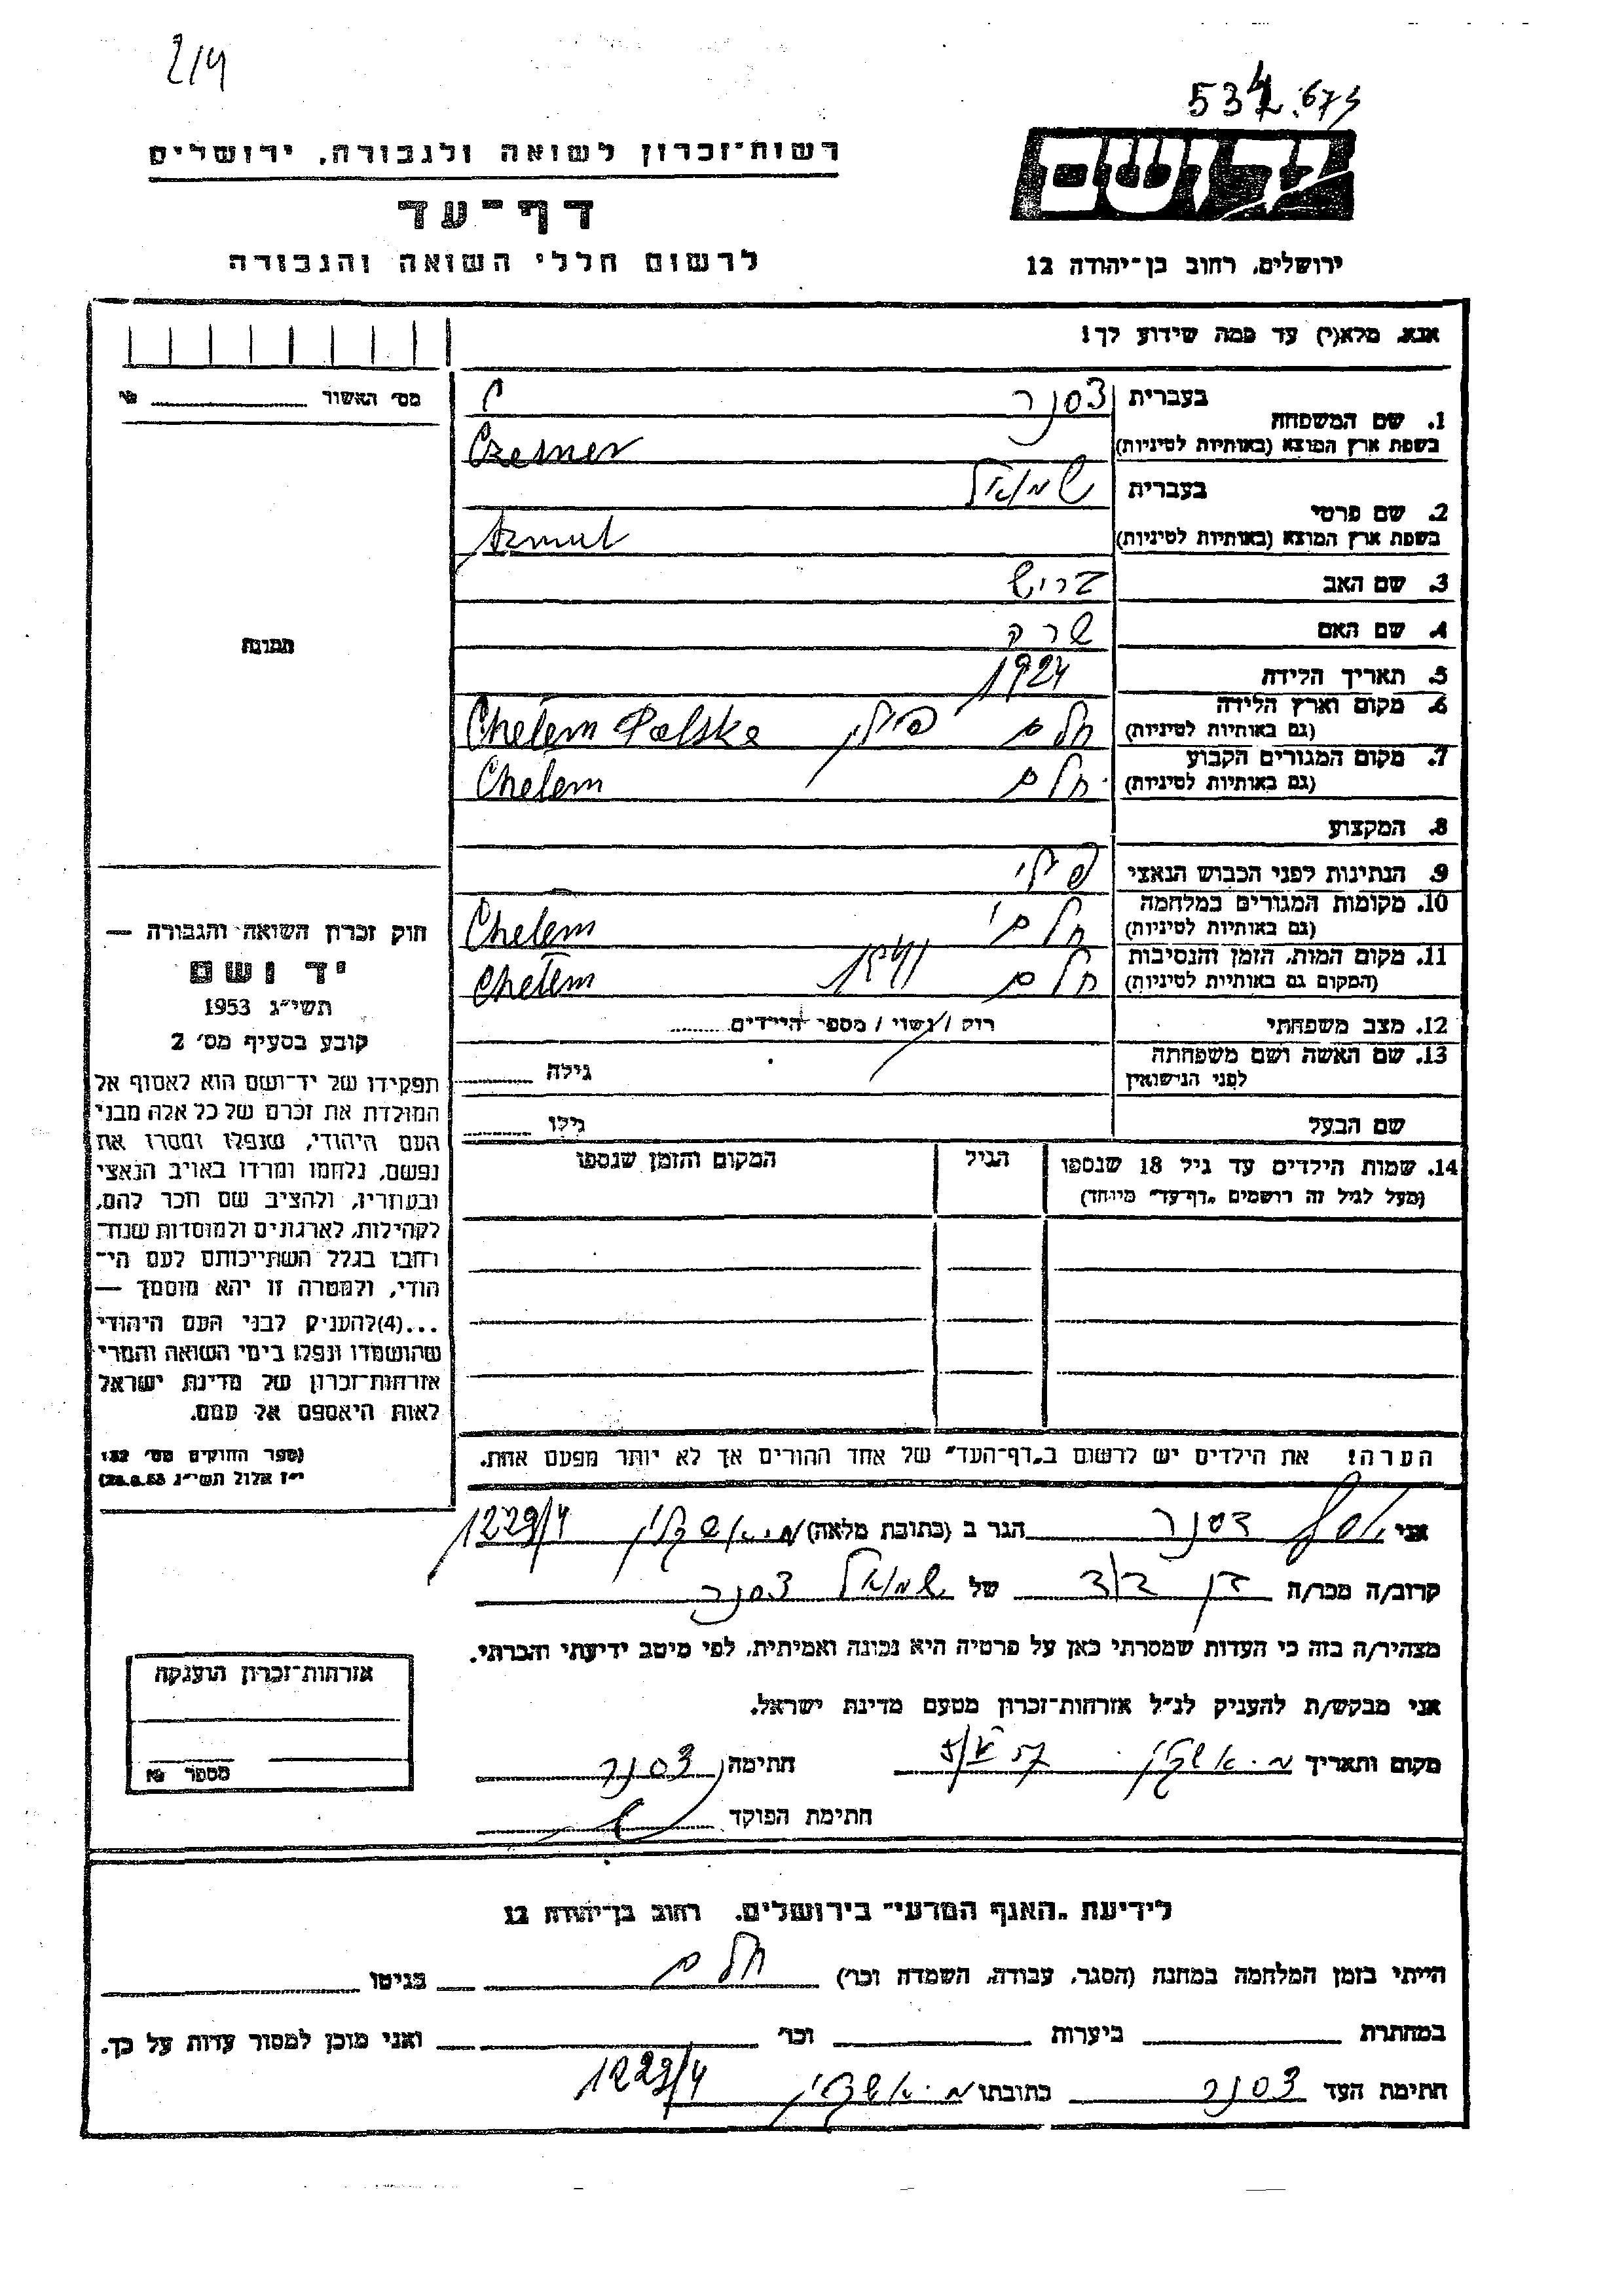 2/4
534.673
רשות־זכרון לשואה ולגבורה, ירושלים
דף־עד
לרשום חללי השואה והגבורה
יד ושם
ירושלים, רחוב בן־יהודה 12
אנא, מלא(י) עד כמה שידוע לך!
מס׳ האשור ........ №
1. שם המשפחה
בעברית צסנר
בשפת ארץ המוצא (באותיות לטיניות) Czesner
2. שם פרטי
בעברית שמואל
בשפת ארץ המוצא (באותיות לטיניות) Szmul
3. שם האב
4. שם האם שרה
5. תאריך הלידה 1924
6. מקום וארץ הלידה חלם פולין Chelem Polska
(גם באותיות לטיניות)
7. מקום המגורים הקבוע חלם Chelem
(גם באותיות לטיניות)
8. המקצוע
9. הנתינות לפני הכבוש הנאצי
10. מקומות המגורים במלחמה חלם Chelem
(גם באותיות לטיניות)
11. מקום המות, הזמן והנסיבות חלם Chelem
(המקום גם באותיות לטיניות)
12. מצב משפחתי רווק / נשוי / מספר הילדים ........
13. שם האשה ושם משפחתה גילה ........
לפני הנישואין
שם הבעל גילו ........
14. שמות הילדים עד גיל 18 שנספו הגיל המקום והזמן שנספו
(מעל לגיל זה רושמים „דף־עד״ מיוחד)
הערה! את הילדים יש לרשום ב„דף־העד״ של אחד ההורים אך לא יותר מפעם אחת.
תמונה
חוק זכרון השואה והגבורה —
יד ושם
תשי״ג 1953
קובע בסעיף מס׳ 2
תפקידו של יד־ושם הוא לאסוף אל
המולדת את זכרם של כל אלה מבני
העם היהודי, שנפלו ומסרו את
נפשם, נלחמו ומרדו באויב הנאצי
ובעוזריו, ולהציב שם וזכר להם,
לקהילות, לארגונים ולמוסדות שנח־
רחבו בגלל השתייכותם לעם הי־
הודי, ולמטרה זו יהא מוסמך —
...(4)להעניק לבני העם היהודי
שהושמדו ונפלו בימי השואה והמרי
אזרחות־זכרון של מדינת ישראל
לאות היאספם אל עמם.
(ספר החוקים מס׳ 132
י״ז אלול תשי״ג 28.8.53)
אני יוסף צסנר הגר ב (כתובת מלאה) מ. אשקלון 1229/4
קרוב/ה מכר/ה בן דוד של שמואל צסנר
מצהיר/ה בזה כי העדות שמסרתי כאן על פרטיה היא נכונה ואמיתית, לפי מיטב ידיעתי והכרתי.
אני מבקש/ת להעניק לנ״ל אזרחות־זכרון מטעם מדינת ישראל.
מקום ותאריך מ. אשקלון חתימה צסנר
חתימת הפוקד
אזרחות־זכרון הוענקה
מספר №
לידיעת „האגף המדעי״ בירושלים, רחוב בן־יהודה 12
הייתי בזמן המלחמה במחנה (הסגר, עבודה, השמדה וכו׳) חלם בגיטו
במחתרת ביערות וכו׳ ואני מוכן למסור עדות על כך.
חתימת העד צסנר כתובתו מ. אשקלון 1229/4